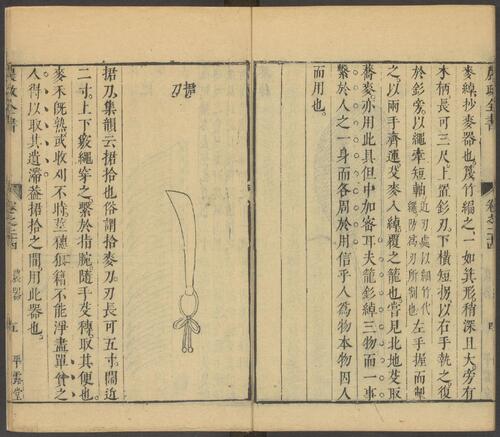 農政全書
卷之二十四
麥綽抄麥器也篾竹編之一如箕形稍深且大旁有
木柄長可三尺上置釤刃下橫短拐以右手執之復
於釤旁以繩牽短軸近刃處以細竹代繩防爲刃所割也左手握而掣
之以兩手齊運芟麥入綽覆之籠也嘗見北地芟取
蕎麥亦用此具但中加密耳夫籠釤綽三物而一事
繫於人之一身而各周於用信乎人爲物本物因人
而用也
捃刀
捃刀集韻云捃拾也俗謂拾麥刀刀長可五寸闊近
二寸上下竅繩穿之繫於指腕隨手芟穗取其便也
麥禾既熟或收刈不時莖穗狼籍不能淨盡單貧之
人得以取其遺滯葢捃拾之間用此器也
農政全書
卷之二十四
農器
五
平露堂